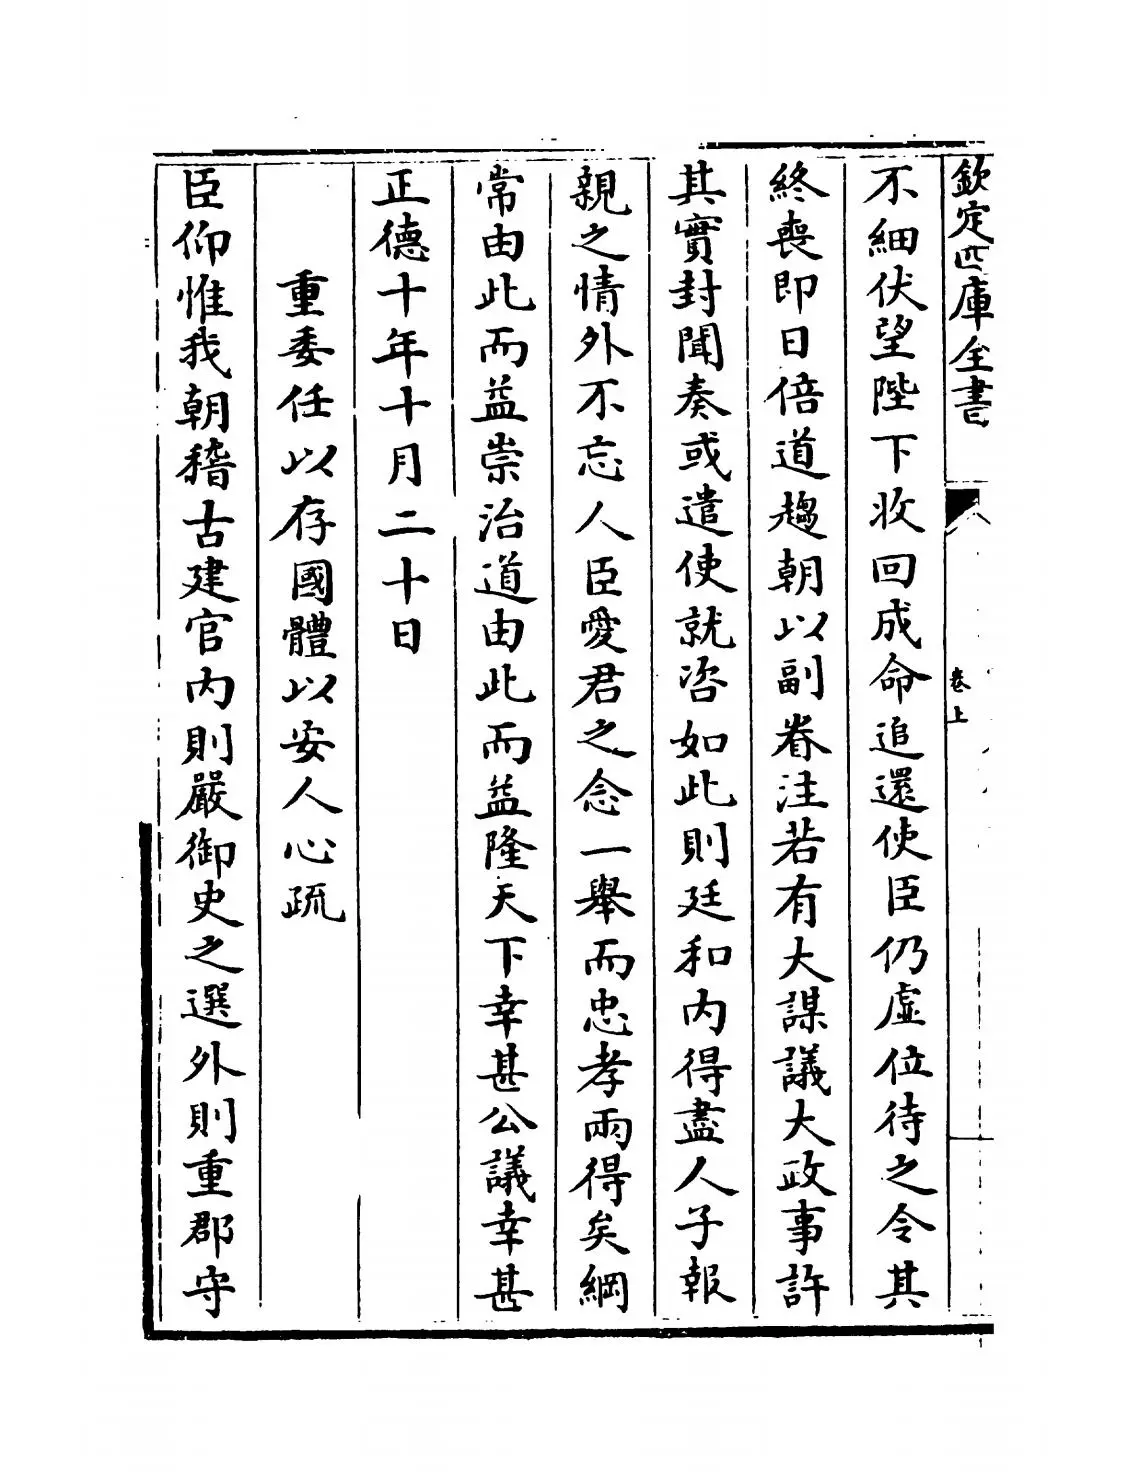 欽定四庫全書
卷上
不細伏望陛下收回成命追還使臣仍虛位待之令其
終喪即日倍道趨朝以副眷注若有大謀議大政事許
其實封聞奏或遣使就咨如此則廷和内得盡人子報
親之情外不忘人臣愛君之念一舉而忠孝兩得矣綱
常由此而益崇治道由此而益隆天下幸甚公議幸甚
正德十年十月二十日
重委任以存國體以安人心疏
臣仰惟我朝稽古建官内則嚴御史之選外則重郡守